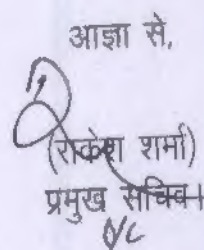 आज्ञा से,
(राकेश शर्मा)
प्रमुख सचिव।